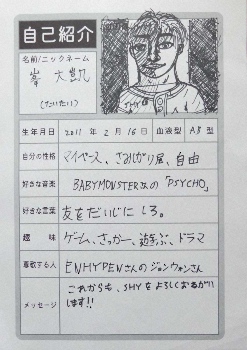 自己紹介
名前/ニックネーム
峯 大凱
(たいたい)
SHY
生年月日 2011 年 2 月 16 日 血液型 AB 型
自分の性格 マイペース、さみしがり屋、自由
好きな音楽 BABYMONSTERさんの「PSYCHO」
好きな言葉 友をだいじにしろ。
趣味 ゲーム、さっかー、遊ぶ、ドラマ
尊敬する人 ENHYPENさんのジョンウォンさん
メッセージ これからも、SHYをよろしくおねがい
します!!